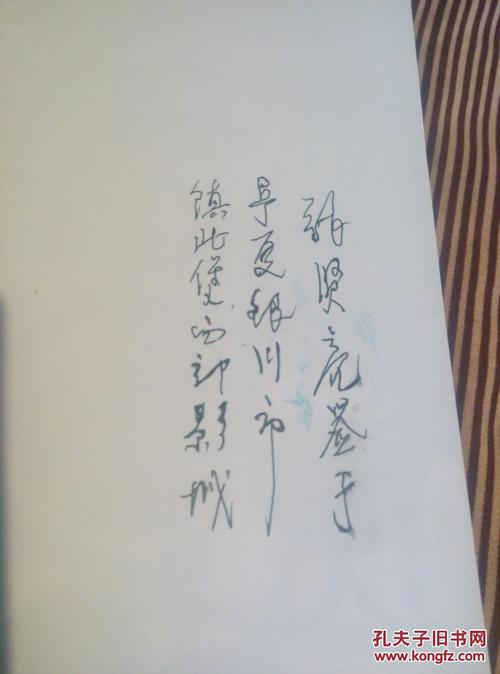 张贤亮签于
宁夏银川市
镇北堡西部影城
孔夫子旧书网
www.kongfz.com